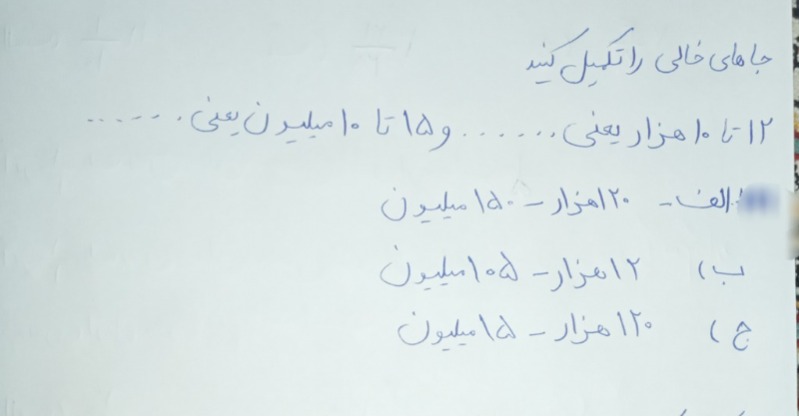 جاهای خالی را تکمیل کنید
۱۲ تا ۱۰ هزار یعنی ...... و ۱۵ تا ۱۰ میلیون یعنی ......
الف - ۱۲۰ هزار - ۱۵۰ میلیون
ب) ۱۲ هزار - ۱۰۵ میلیون
ج) ۱۲۰ هزار - ۱۵ میلیون